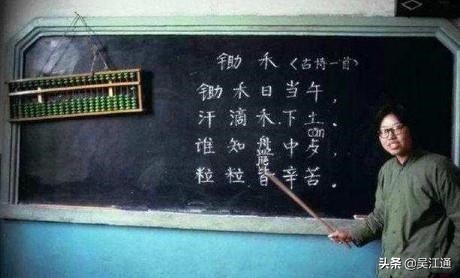 锄禾〈古诗一首〉
锄禾日当午，
汗滴禾下土、
cān
谁知盘中歺，
粒粒皆辛苦。
头条 @吴江通